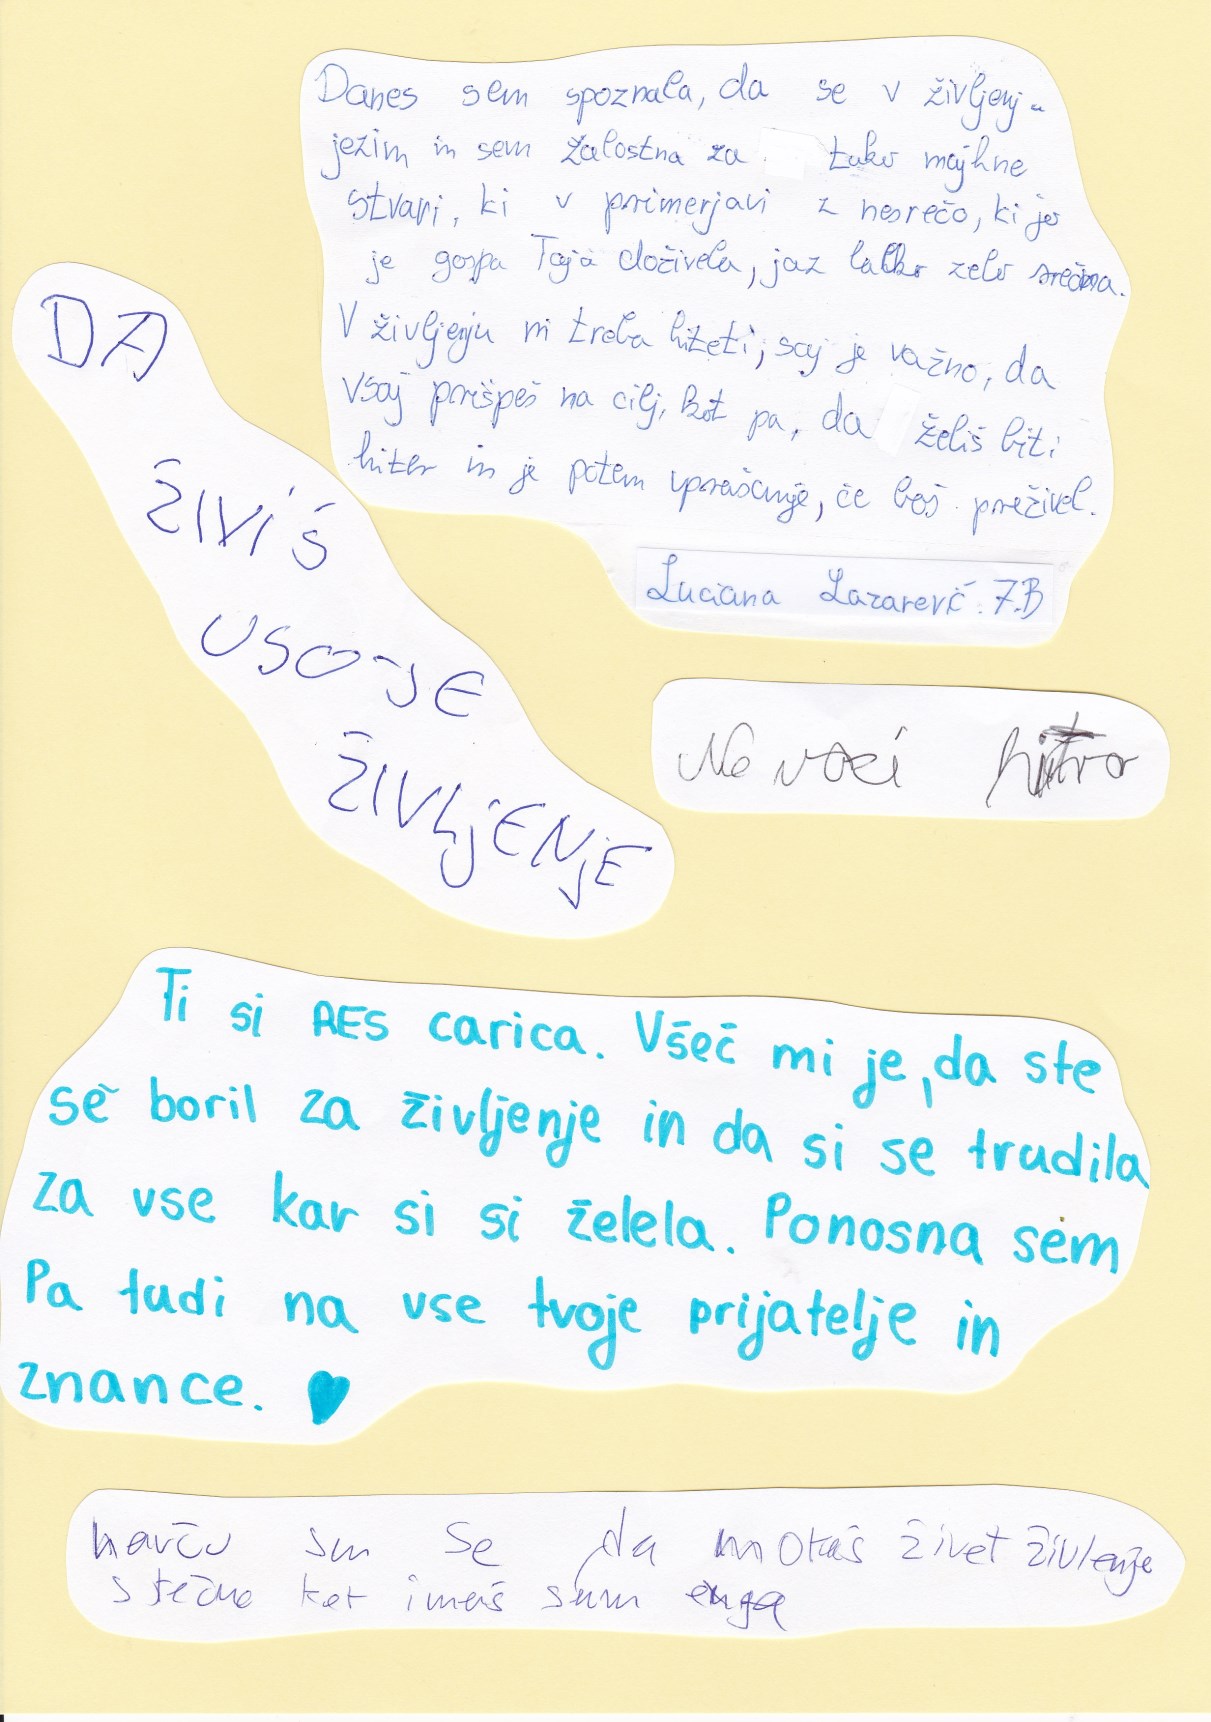 Danes sem spoznala, da se v življenj-
jezim in sem žalostna za tako majhne
stvari, ki v primerjavi z nesrečo, ki jo
je gospa Taja doživela, jaz lahko zelo srečna.
V življenju ni treba hiteti, saj je važno, da
vsaj prišpeš na cilj, kot pa, da želiš biti
hiter in je potem vprašanje, če boš preživel.
Luciana Lazarević 7.B
DA
ŽIVIŠ
USOJE
ŽIVLjENjE
Ne vozi hitro
Ti si RES carica. Všeč mi je, da ste
se boril za življenje in da si se trudila
za vse kar si si želela. Ponosna sem
Pa tudi na vse tvoje prijatelje in
znance.
navču sm se da motaš živet življenje
stečno ket imaš sam enga